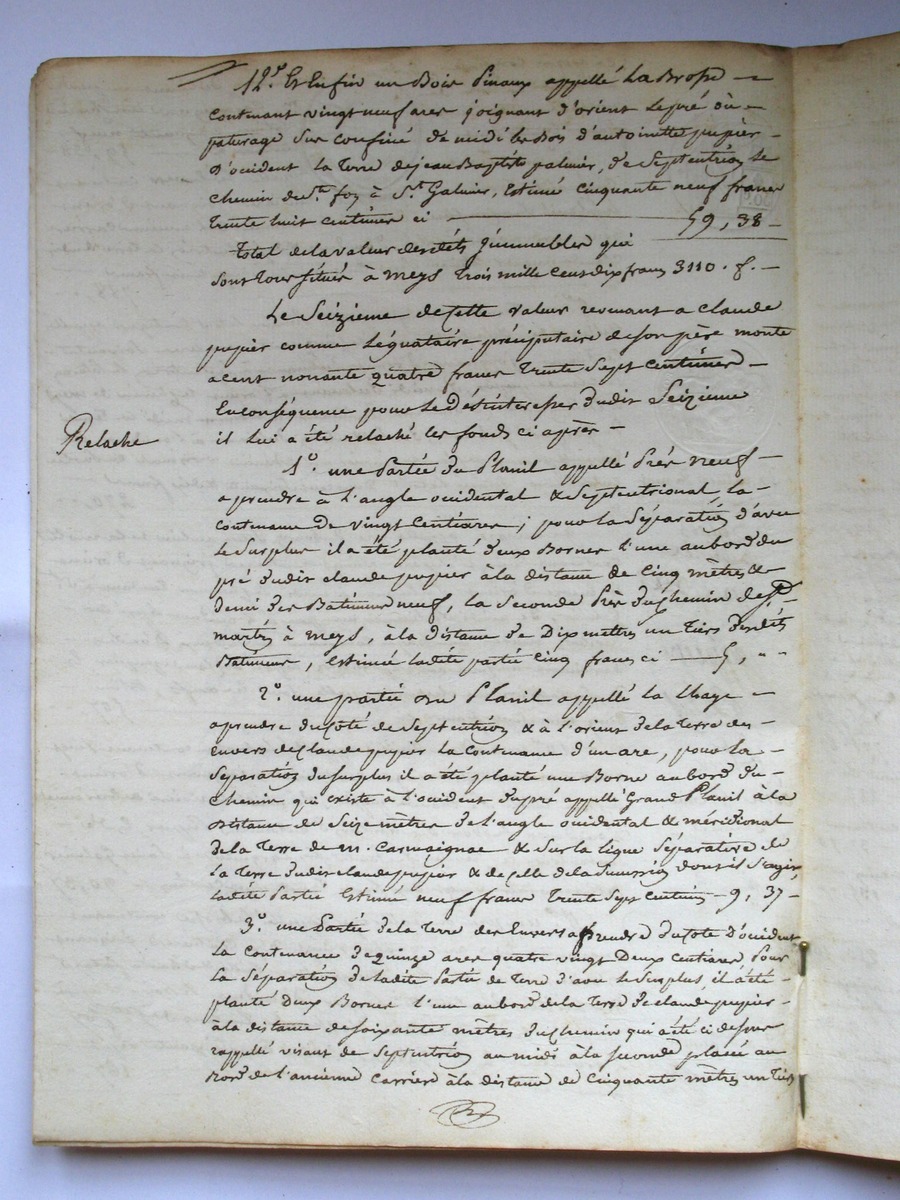 12.° Et Enfin un Bois Pinaux appellé La Brosse —
Contenant vingt neuf ares joignant d'orient le pré ou —
paturage sur confiné de midi le Bois d'antoinette pupier —
d'occident la Terre de jean Baptiste palmier, de Septentrion le
chemin de Ste. foy à St. Galmier, Estimé cinquante neuf francs
trente huit centimes ci — 59, 38 —
Total de la valeur desdits jmmeubles qui
sont tous situés à meys trois mille cent dix francs 3110. f. —
Le Seizieme de cette valeur revenant a claude
pupier comme légataire précipuitaire de son père monte
a cent nonante quatre francs trente Sept centimes —
En conséquence pour le Désintéresser dudit Seizieme
il lui a été relaché les fonds ci après —
Relache
1.° une Partie du Planil appellé Prés neuf —
a prendre à l'angle occidental & Septentrional, la —
contenance De vingt centiares ; pour la Séparation d'avec
le Surplus il a été planté deux Bornes l'une au bord du
pré dudit claude pupier à la distance de cinq mètres &
demi des Batimens neuf, la Seconde Près du chemin de St.
martin à meys, à la distance de Dix mettres un tiers desdits
Batimens, Estimée ladite partie cinq francs ci — 5, " "
2.° une partie du Planil appellé la Chaye —
a prendre du côté de Septentrion & à l'orient de la Terre des —
envers de claude pupier la contenance d'un are, pour la —
Séparation du surplus il a été planté une Borne au bord du —
chemin qui existe à l'occident du pré appellé Grand Planil à la
Distance de Seize mètres de l'angle occidental & méridional
de la Terre de m. Carmaignac & sur la ligne Séparative de
la Terre dudit claude pupier & de celle de la Succession dont il s'agit,
ladite Partie Estimée neuf francs trente Sept centimes — 9, 37 —
3.° une Partie de la Terre des Envers a Prendre du côté D'occident
La contenance de quinze ares quatre vingt Deux centiares, Pour
La Séparation de ladite Partie de Terre d'avec le Surplus, il a été —
planté Deux Bornes l'une au bord de la Terre de claude pupier —
à la distance de soixante mètres du chemin qui a été ci dessus
rappellé visant de Septentrion au midi à la seconde placée au
Bord de l'ancienne carrière à la distance de cinquante mètres un tiers